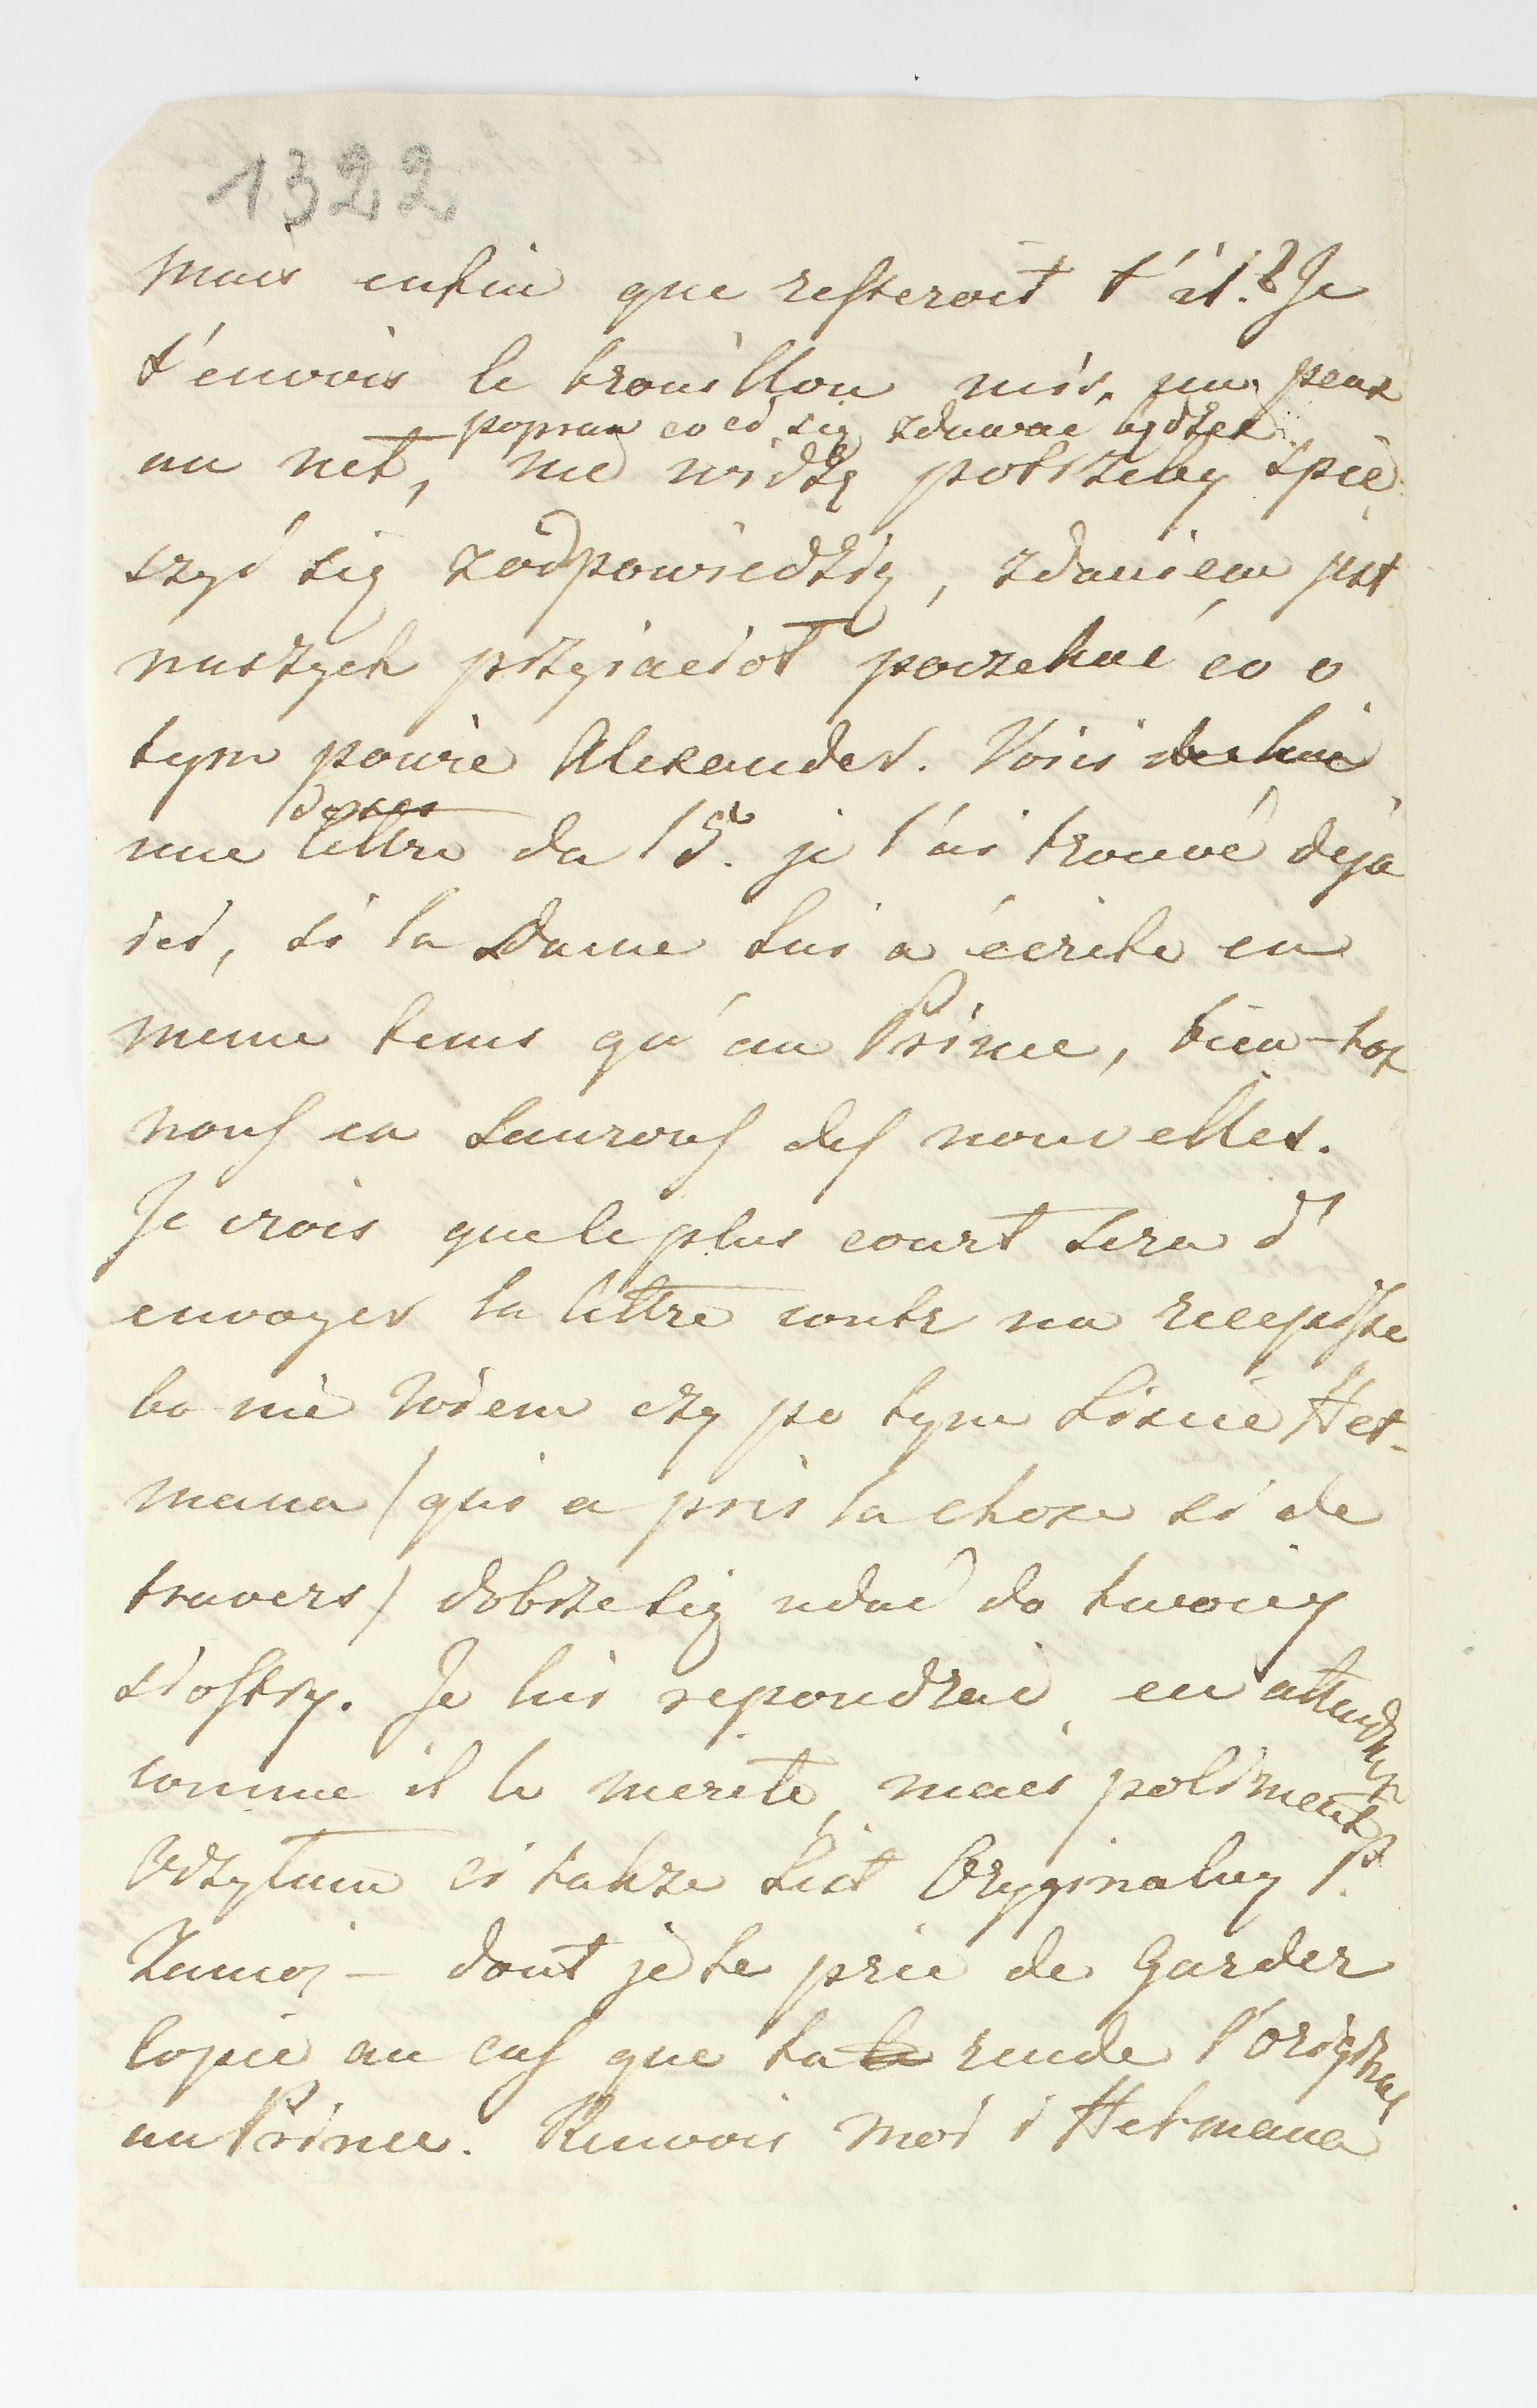 1322
mais enfin que resteroit t'il? Je
t'envois le brouillon mis, un peux
popraw co ci się zdawać będzie
au net, nie widzę potrzeby spie
szyć się zodpowiedzią, zdaniem jest
naszych przyiaciół poczekać co o
tym powie Alexander. Voici
une lettre du 15. je l'ai trouvé deja
ici, si la Dame lui a écrite en
meme tems qu'au Prince, bien-tot
nous en saurons des nouvelles.
Je crois que le plus court sera d'
envoyer la lettre contr un recepisse
bo nie wiem czy po tym Liscie Het-
mana (qui a pris la chose si de
travers) dobrze się udać do twoiey
siostry. Je lui repondrai, en attendant
comme il le merite, mais poliment
Odsyłam ci także List Oryginalny P.
Zamoj – dont je te prie de garder
Copie au cas que ta rende l'original
au Prince. Renvois moi i Hetmana